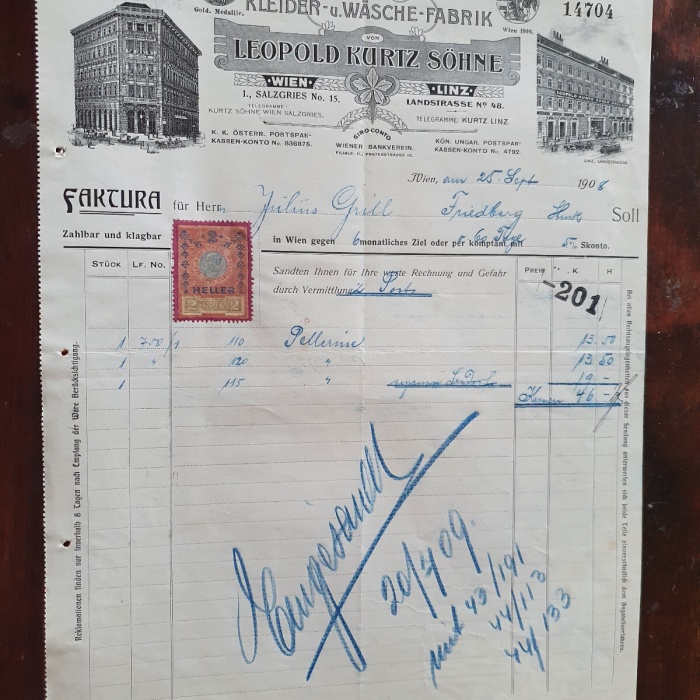 Gold. Medaille.
KLEIDER- u. WÄSCHE-FABRIK
Wien 1906.
14704
VON
LEOPOLD KURTZ SÖHNE
WIEN
LINZ
I., SALZGRIES No. 15.
LANDSTRASSE No 48.
TELEGRAMME:
KURTZ SÖHNE WIEN SALZGRIES.
TELEGRAMME: KURTZ LINZ
GIRO-CONTO
WIENER BANKVEREIN.
K. K. ÖSTERR. POSTSPAR-
KASSEN-KONTO No. 836876.
KÖN. UNGAR. POSTSPAR-
KASSEN-KONTO No. 4792.
LINZ, LANDSTRASSE
Wien, am 25. Sept 1906
FAKTURA für Herrn Julius Grill Friedberg Soll
Zahlbar und klagbar in Wien gegen 6 monatliches Ziel oder per komptant mit 5% Skonto.
2
HELLER
2 2
STÜCK LF. No. PREIS K H
Sandten Ihnen für Ihre werte Rechnung und Gefahr
durch Vermittlung
-201
1 750/1 110 Pellerine 13.50
1 " 120 " 13.50
1 115 " 19.-
46.-
Reklamationen finden nur innerhalb 8 Tagen nach Empfang der Ware Berücksichtigung.
Bei allen Rechtsangelegenheiten aus dieser Sendung unterwerfen sich beide Teile
20/4 09.
43/191
44/113
44/133